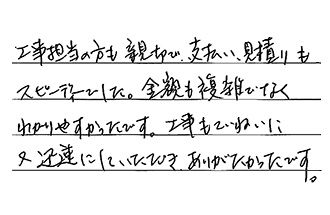 工事担当の方も親切で、支払い、見積りも
スピーディでした。金額も複雑でなく
わかりやすかったです。工事もていねいに
又迅速にしていただき、ありがたかったです。